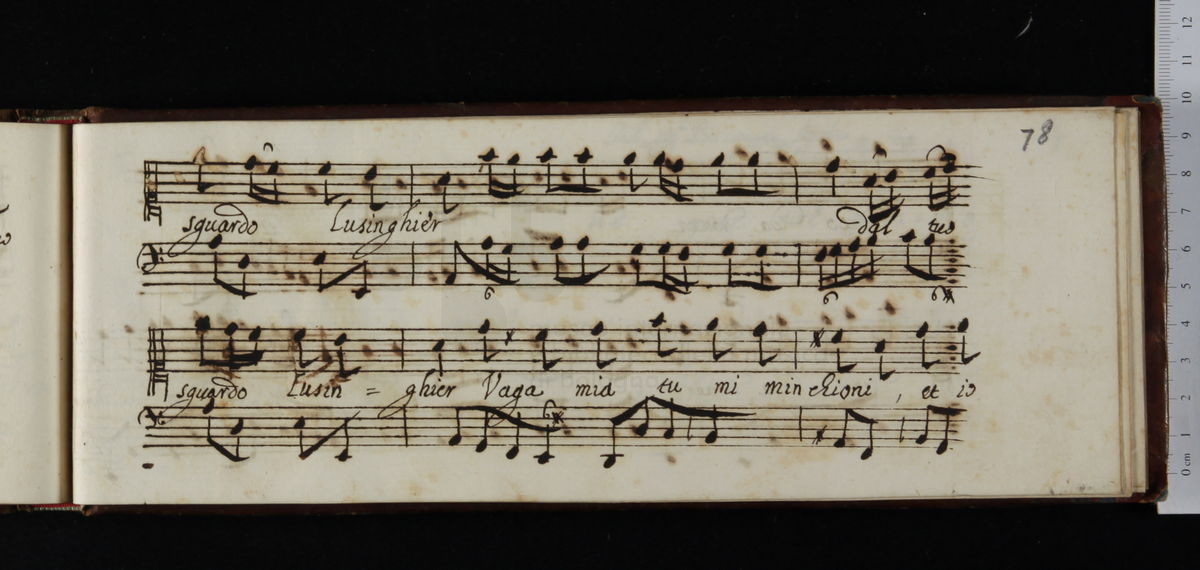 78
sguardo Lusinghier dal tuo
6 6 6
sguardo Lusin = ghier Vaga mia tu mi minchioni, et io
6
12
11
10
9
8
7
6
5
4
3
2
1
0 cm